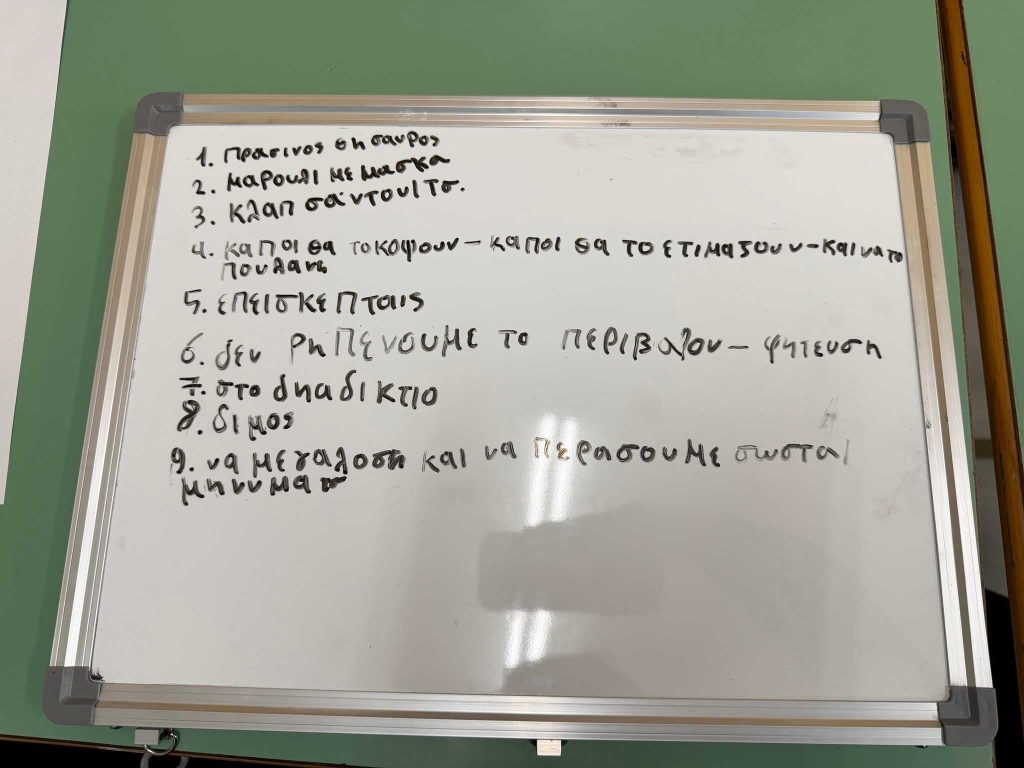 1. πρασινος θησαυρος
2. μαρουλι με μασκα
3. κλαπ σάντουιτσ.
4. καποι θα το κοψουν – καποι θα το ετιμαξουν – και να το
πουλανε
5. επεισκεπταις
6. δεν ρηπενουμε το περιβαλον – φητευση
7. στο δηαδικτιο
8. διμος
9. να μεγαλοση και να περασουμε σωστα
μηνυματα